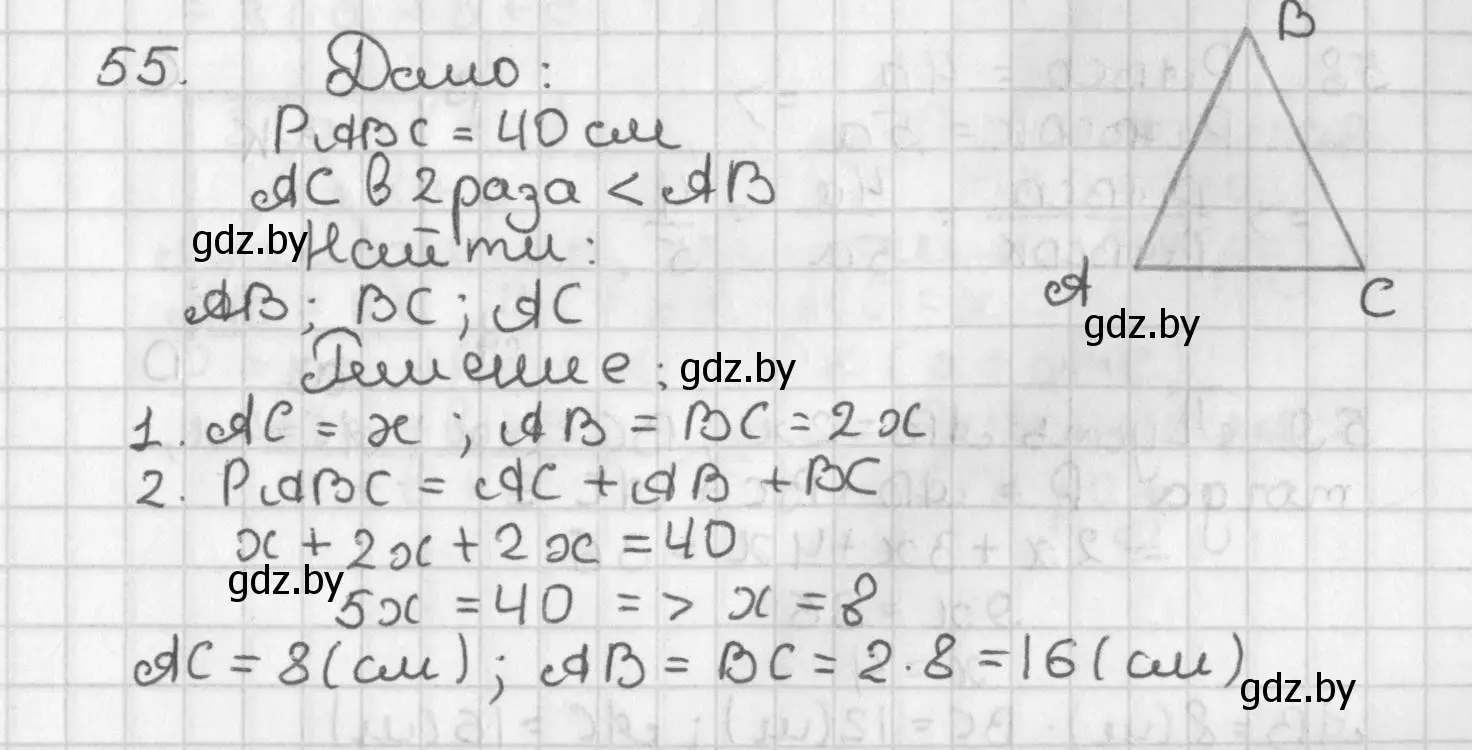 55. Дано:
B
PABC = 40 см
AC в 2 раза < AB
gdz.by
Найти:
A
C
gdz.by
AB; BC; AC
Решение;
gdz.by
1. AC = x; AB = BC = 2x
2. PABC = AC + AB + BC
x + 2x + 2x = 40
gdz.by
5x = 40 => x = 8
AC = 8 (см); AB = BC = 2·8 = 16 (см)
gdz.by